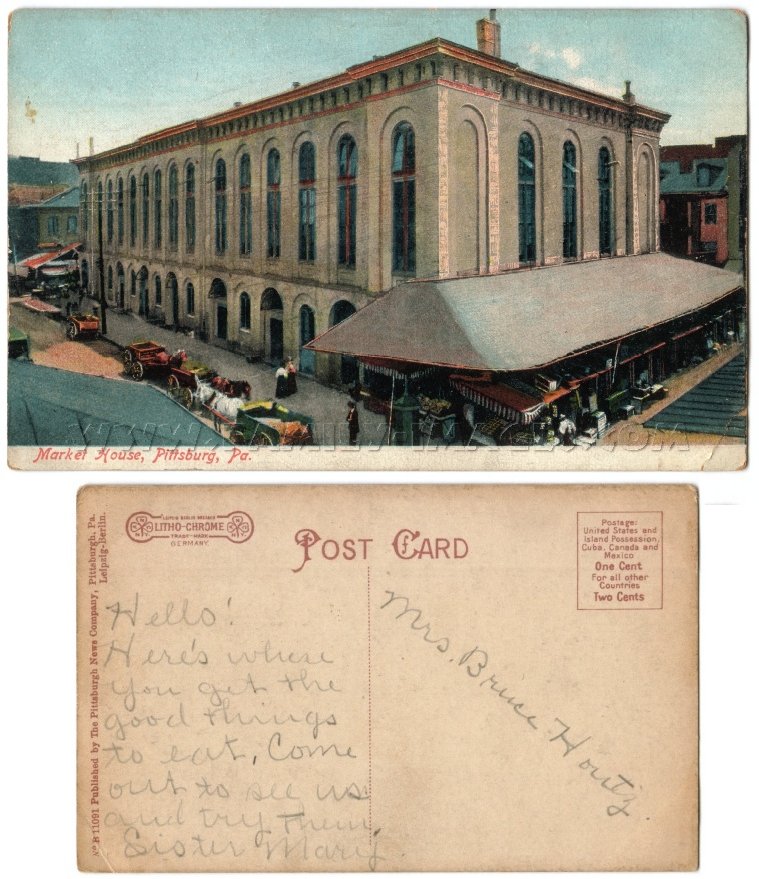 WWW.FAMILY-IMAGES.COM
Market House, Pittsburg, Pa.
No. B 11091 Published by The Pittsburgh News Company, Pittsburgh, Pa.
Leipzig-Berlin.
LEIPZIG BERLIN DRESDEN
LITHO-CHROME
TRADE-MARK
GERMANY.
POST CARD
Postage:
United States and
Island Possession,
Cuba, Canada and
Mexico
One Cent
For all other
Countries
Two Cents
Hello!
Here's where
you get the
good things
to eat, Come
out to see us
and try them,
Sister Mary.
Mrs. Bruce Houtz.